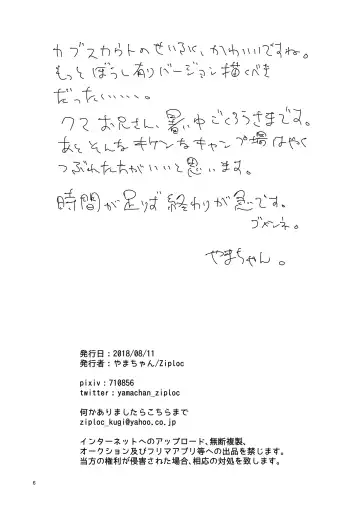 カブスカウトのせいふく、かわいいですね。
もっとぼうし有りバージョン描くべき
だったいい、、、。
クマお兄さん、暑い中ごくろうさまです。
あとそんなキケンなキャンプ場はやく
つぶれた方がいいと思います。
時間が足りず終わりが急です。
ゴメンネ。
やまちゃん。
発行日：2018/08/11
発行者：やまちゃん/Ziploc
pixiv：710856
twitter：yamachan_ziploc
何かありましたらこちらまで
ziploc_kugi@yahoo.co.jp
インターネットへのアップロード、無断複製、
オークション及びフリマアプリ等への出品を禁じます。
当方の権利が侵害された場合、相応の対処を致します。
6